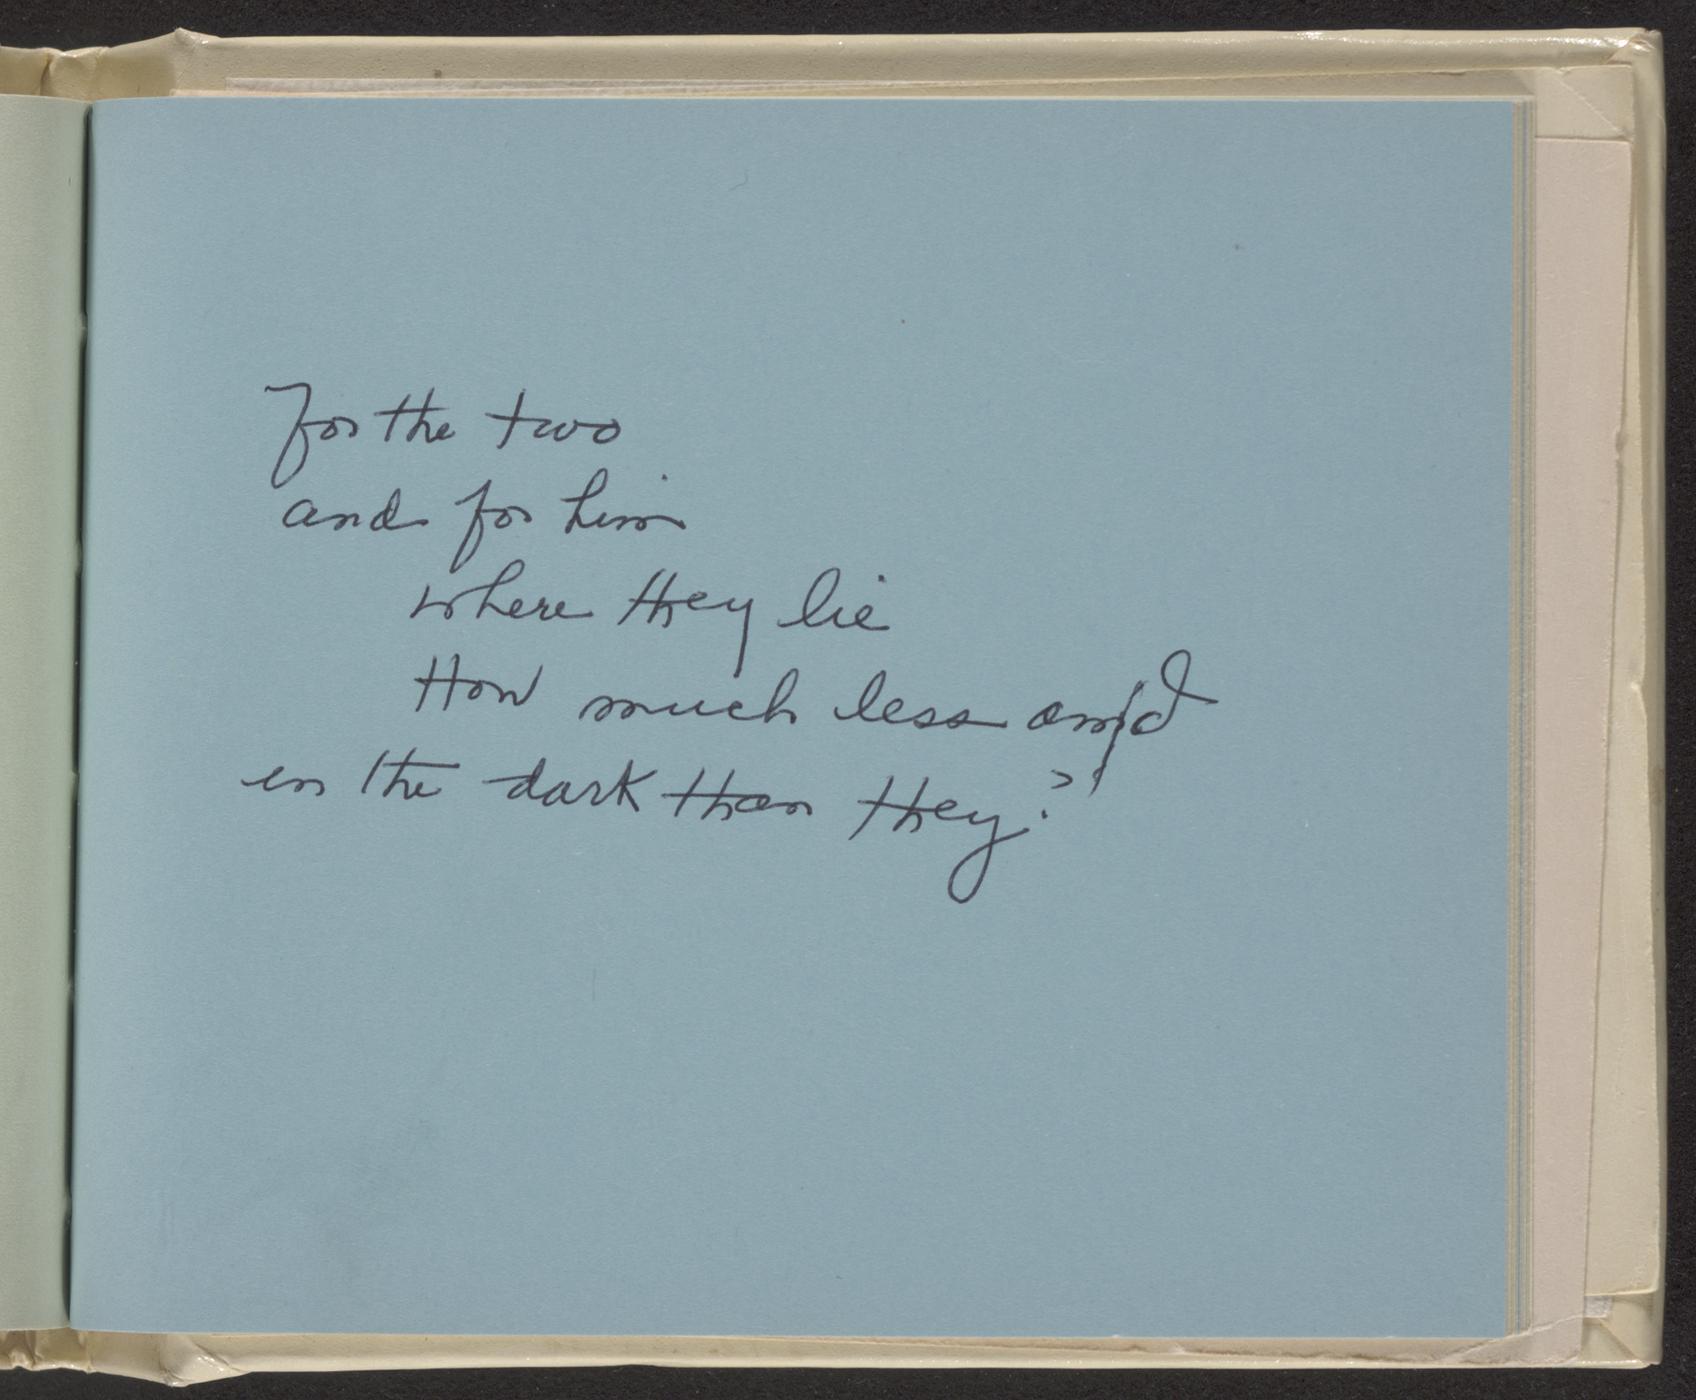 For the two
and for him
where they lie
How much less am I
in the dark than they?